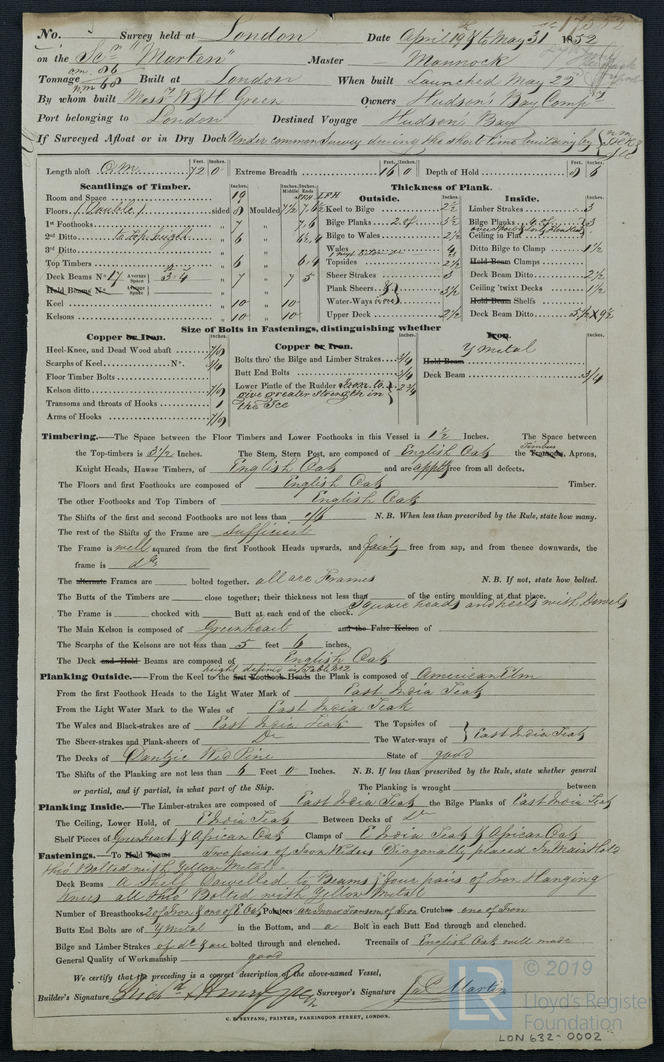 No. Survey held at London Date April 19th & to May 31 1852
on the Scr "Marten" Master Mannock
Tonnage om 86 nm 68 Built at London When built Launched May 22
By whom built Messrs R & H Green Owners Hudson's Bay Compy
Port belonging to London Destined Voyage Hudson's Bay
If Surveyed Afloat or in Dry Dock Under common survey during the short time building by
Length aloft O.M. Feet. 72 Inches. 0 Extreme Breadth Feet. 16 Inches. 0 Depth of Hold Feet. 8 Inches. 6
Scantlings of Timber. Thickness of Plank.
Outside. Inside.
Room and Space 19
Floors (Double) sided 8 Moulded 7½
1st Foothooks
2nd Ditto to top height 6
3rd Ditto
Top Timbers 6 6.4
Deck Beams No 17 Average Space 3.4 7 7 5
Hold Beams No Average Space
Keel 10 10
Kelsons 10 10
Keel to Bilge 2½
Bilge Planks 2 of 3½
Bilge to Wales 2½
Wales 4
Topsides 2½
Sheer Strakes 3
Plank Sheers 3½
Water-Ways
Upper Deck 2½
Limber Strakes 3
Bilge Planks 4 of 3
Ceiling in Flat
Ditto Bilge to Clamp 1½
Hold Beam Clamps
Deck Beam Ditto 2½
Ceiling 'twixt Decks 1½
Hold Beam Shelfs
Deck Beam Ditto 5½ x 9½
Size of Bolts in Fastenings, distinguishing whether
Copper or Iron. Copper or Iron. Iron.
Heel-Knee, and Dead Wood abaft 7/8
Scarphs of Keel No. 3/4
Floor Timber Bolts
Kelson ditto 7/8
Transoms and throats of Hooks 1
Arms of Hooks 7/8
Bolts thro' the Bilge and Limber Strakes 3/4
Butt End Bolts 3/4
Lower Pintle of the Rudder Iron to give greater strength in the Ice 2¾
Y Metal
Hold Beam
Deck Beam 3/4
Timbering.—The Space between the Floor Timbers and Lower Foothooks in this Vessel is 1½ Inches. The Space between
the Top-timbers is 3½ Inches. The Stem, Stern Post, are composed of English Oak the Transoms, Timbers Aprons,
Knight Heads, Hawse Timbers, of English Oak and are free from all defects.
The Floors and first Foothooks are composed of English Oak Timber.
The other Foothooks and Top Timbers of English Oak
The Shifts of the first and second Foothooks are not less than N.B. When less than prescribed by the Rule, state how many.
The rest of the Shifts of the Frame are sufficient
The Frame is well squared from the first Foothook Heads upwards, and fairly free from sap, and from thence downwards, the
frame is do
The alternate Frames are bolted together. all are Frames N.B. If not, state how bolted.
The Butts of the Timbers are close together; their thickness not less than of the entire moulding at that place.
The Frame is chocked with Butt at each end of the chock. Square heads and heels with dowels
The Main Kelson is composed of Greenheart and the False Kelson of
The Scarphs of the Kelsons are not less than 5 feet 6 inches.
The Deck and Hold Beams are composed of English Oak
Planking Outside.—From the Keel to the first Foothook Heads height defined in Table No 2 the Plank is composed of American Elm
From the first Foothook Heads to the Light Water Mark of East India Teak
From the Light Water Mark to the Wales of East India Teak
The Wales and Black-strakes are of East India Teak The Topsides of
The Sheer-strakes and Plank-sheers of Do The Water-ways of East India Teak
The Decks of Dantzic Red Pine State of good
The Shifts of the Planking are not less than 6 Feet 0 Inches. N.B. If less than prescribed by the Rule, state whether general
or partial, and if partial, in what part of the Ship. The Planking is wrought between
Planking Inside.—The Limber-strakes are composed of East India Teak the Bilge Planks of East India Teak
The Ceiling, Lower Hold, of E India Teak Between Decks of Do
Shelf Pieces of Greenheart & African Oak Clamps of E India Teak & African Oak
Fastenings.—To Hold Beams Two pairs of Iron Riders Diagonally placed In Main Hold
thro' Bolted with Yellow Metal
Deck Beams A Shelf Dowelled to Beams & four pairs of Iron Hanging
Knees all thro' Bolted with Yellow Metal
Number of Breasthooks 2 of Iron & one of E Oak Pointers Crutches one of Iron
Butts End Bolts are of Y Metal in the Bottom, and a Bolt in each Butt End through and clenched.
Bilge and Limber Strakes of do & are bolted through and clenched. Treenails of English Oak well made
General Quality of Workmanship good
We certify that the preceding is a correct description of the above-named Vessel,
Builder's Signature Surveyor's Signature Martin
C. F. SEYFANG, PRINTER, FARRINGDON STREET, LONDON.
LR © 2019
Lloyd's Register
Foundation
LON 632-0002